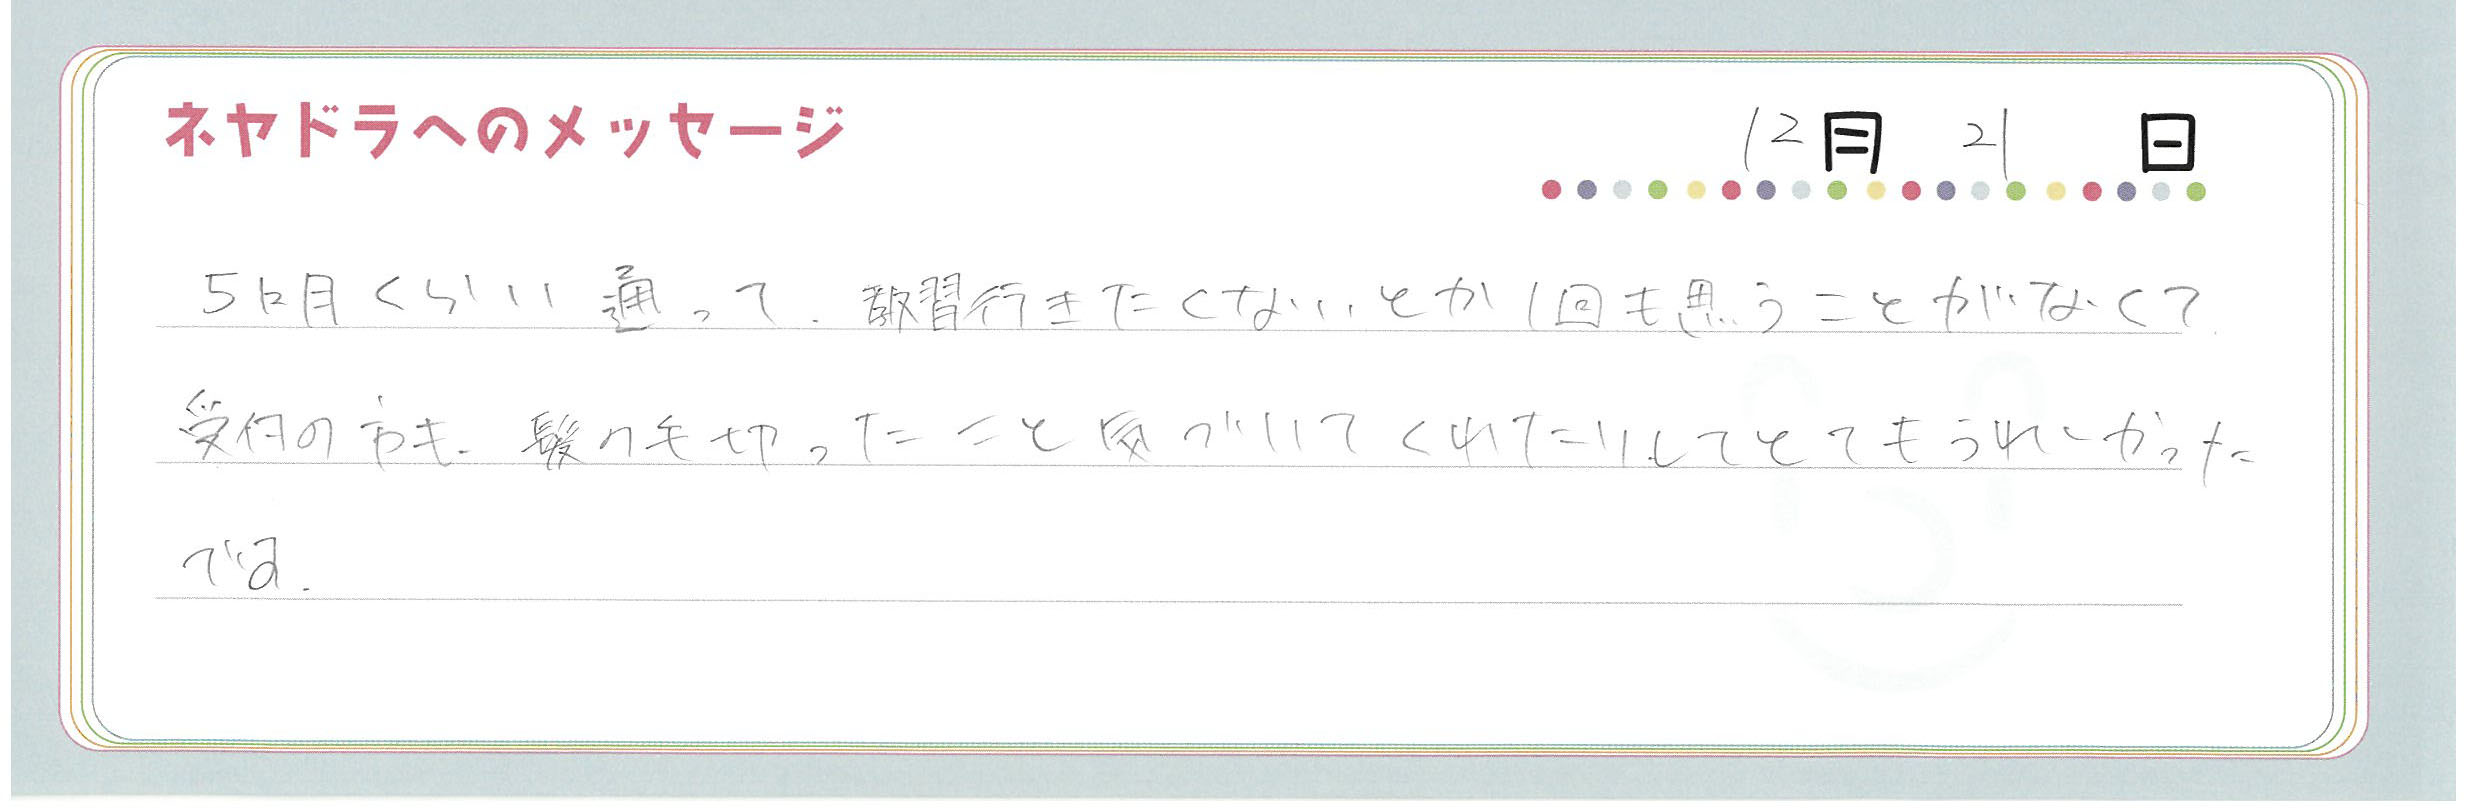 ネヤドラへのメッセージ
12月 21 日
5ヶ月くらい通って、教習行きたくないとか1回も思うことがなくて、
受付の方も、髪の毛切ったこと気づいてくれたりしてとてもうれしかった
です。